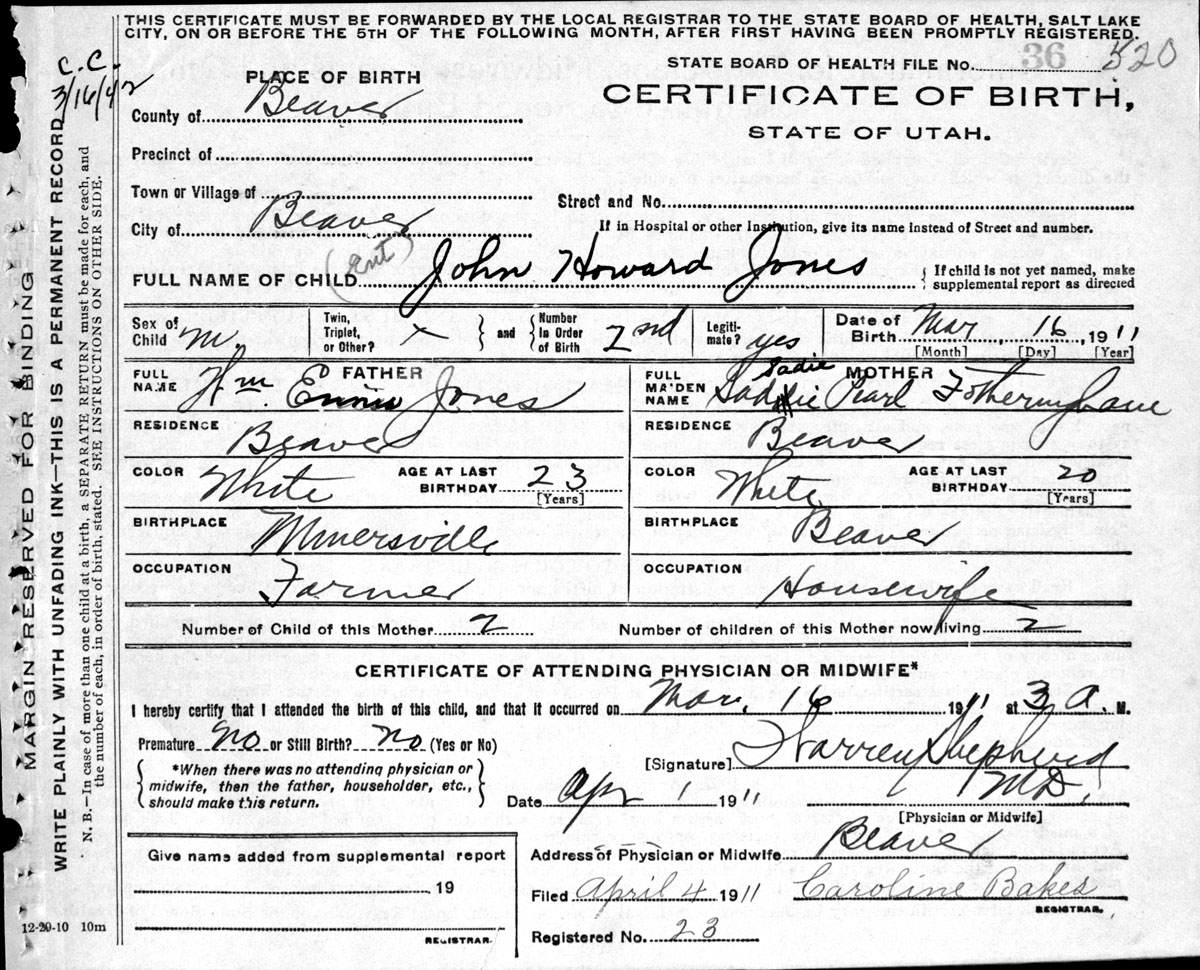 THIS CERTIFICATE MUST BE FORWARDED BY THE LOCAL REGISTRAR TO THE STATE BOARD OF HEALTH, SALT LAKE
CITY, ON OR BEFORE THE 5TH OF THE FOLLOWING MONTH, AFTER FIRST HAVING BEEN PROMPTLY REGISTERED.
C.C.
3/16/42
MARGIN RESERVED FOR BINDING
WRITE PLAINLY WITH UNFADING INK—THIS IS A PERMANENT RECORD
N. B.—In case of more than one child at a birth, a SEPARATE RETURN must be made for each, and
the number of each, in order of birth, stated. SEE INSTRUCTIONS ON OTHER SIDE.
PLACE OF BIRTH
County of Beaver
Precinct of
Town or Village of
City of Beaver
STATE BOARD OF HEALTH FILE No. 36 520
CERTIFICATE OF BIRTH,
STATE OF UTAH.
Street and No.
If in Hospital or other Institution, give its name instead of Street and number.
FULL NAME OF CHILD John Howard Jones { If child is not yet named, make
supplemental report as directed
Sex of Child m. Twin, Triplet, or Other? x and Number In Order of Birth 2nd Legitimate? yes Date of Birth Mar, 16, 1911
[Month] [Day] [Year]
FATHER
FULL NAME Wm. Jones
RESIDENCE Beaver
COLOR White AGE AT LAST BIRTHDAY 23
[Years]
BIRTHPLACE Minersville
OCCUPATION Farmer
MOTHER
FULL MAIDEN NAME Sadie Pearl
RESIDENCE Beaver
COLOR White AGE AT LAST BIRTHDAY 20
[Years]
BIRTHPLACE Beaver
OCCUPATION Housewife
Number of Child of this Mother 2 Number of children of this Mother now living 2
CERTIFICATE OF ATTENDING PHYSICIAN OR MIDWIFE*
I hereby certify that I attended the birth of this child, and that it occurred on Mar, 16 1911 at 3 a. M.
Premature No or Still Birth? No (Yes or No)
*When there was no attending physician or
midwife, then the father, householder, etc.,
should make this return.
[Signature] Warren Shepherd
M.D.
Date Apr 1 1911
[Physician or Midwife]
Give name added from supplemental report
19
REGISTRAR.
12-20-10 10m
Address of Physician or Midwife Beaver
Filed April 4 1911 Caroline Bakes
REGISTRAR.
Registered No. 23